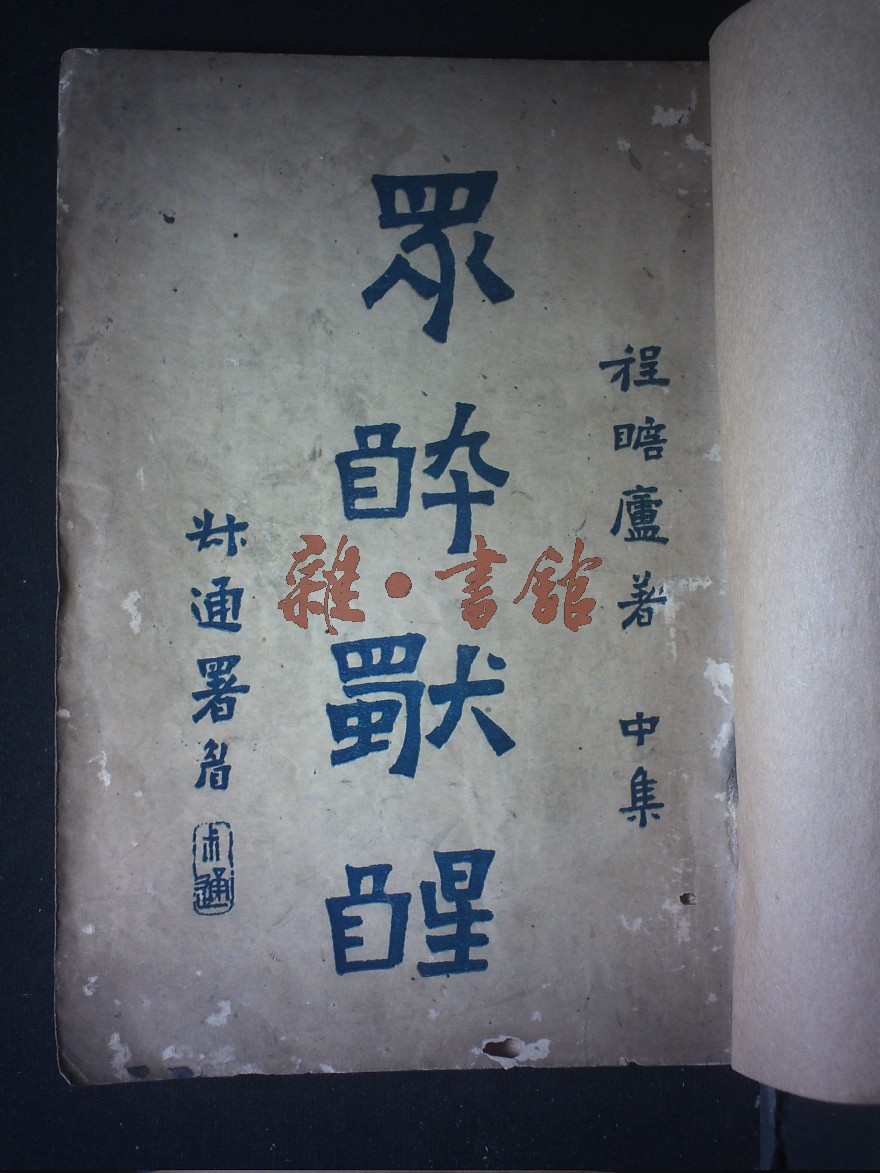 程瞻廬著 中集
眾醉獨醒
叔通署眉
叔通
雜·書館